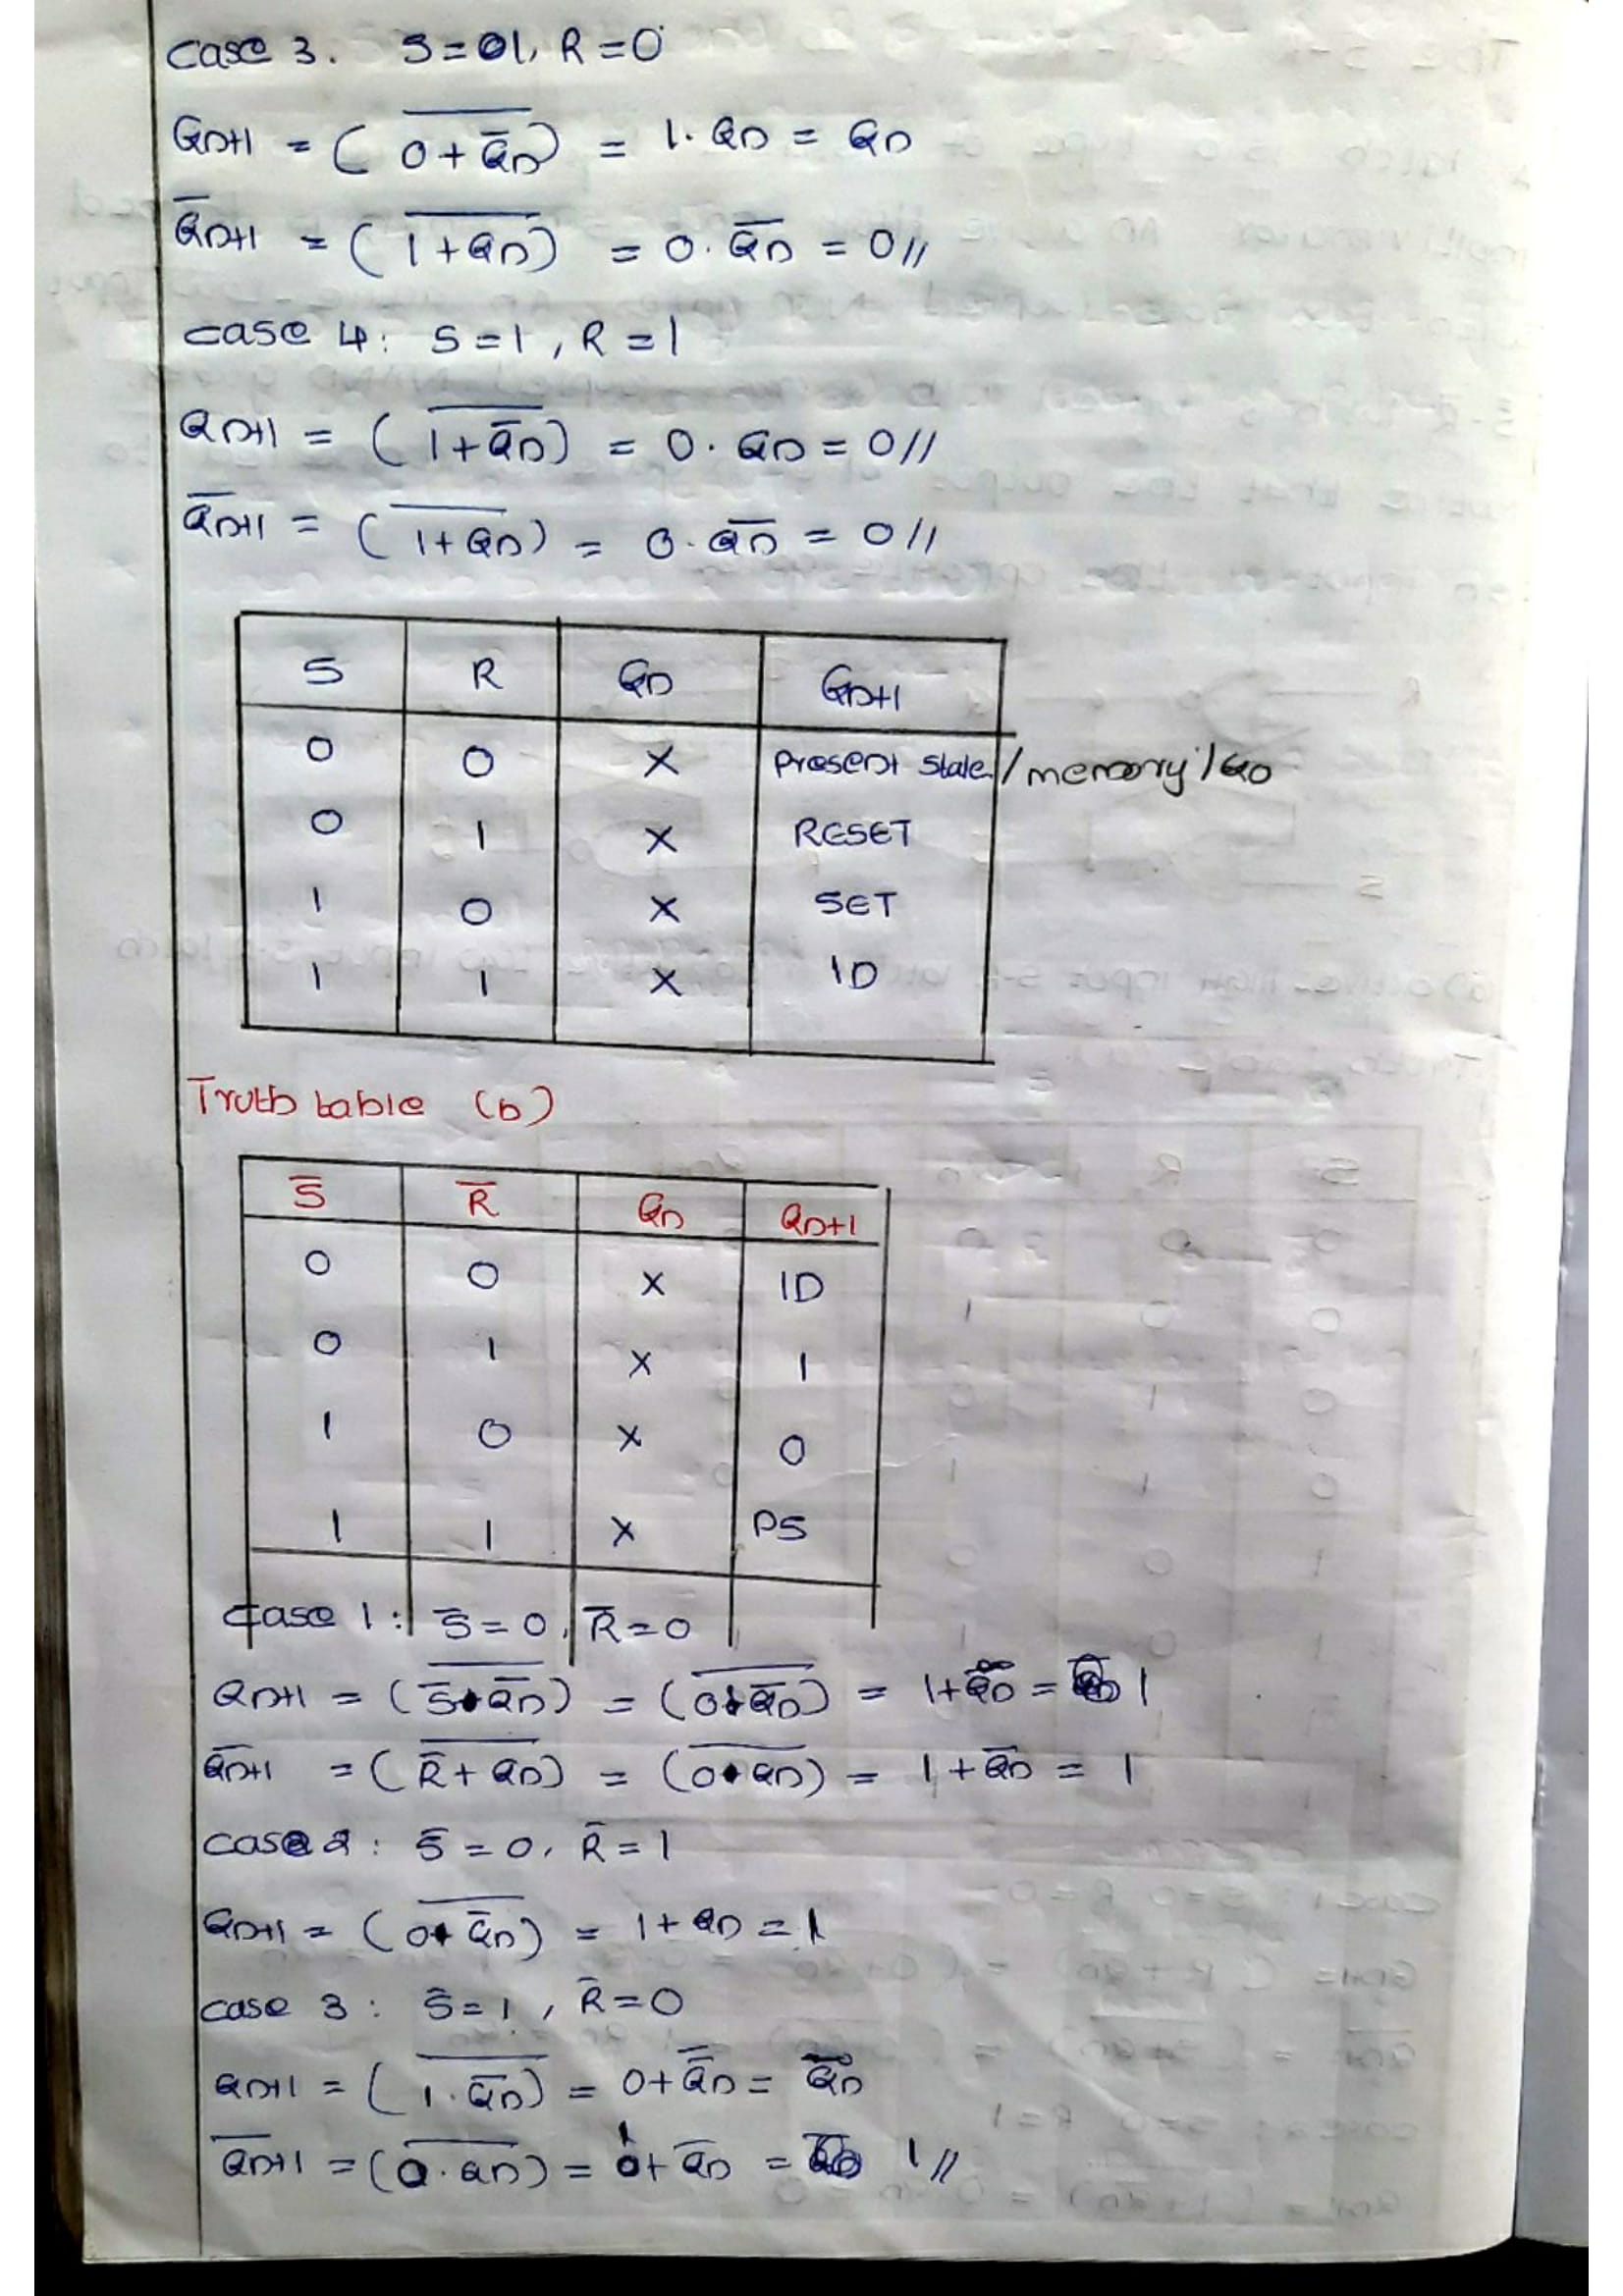 Case 3. S=01, R=0
Qn+1 = (\overline{0+Q̄n}) = 1·Qn = Qn
Q̄n+1 = (\overline{1+Qn}) = 0·Q̄n = 0//
case 4: S=1, R=1
Qn+1 = (\overline{1+Q̄n}) = 0·Qn = 0//
Q̄n+1 = (\overline{1+Qn}) = 0·Q̄n = 0//
S R Qn Qn+1
0 0 X Present state/memory/Qn
0 1 X RESET
1 0 X SET
1 1 X ID
Truth table (b)
S̄ R̄ Qn Qn+1
0 0 X ID
0 1 X 1
1 0 X 0
1 1 X PS
case 1: S̄=0, R̄=0
Qn+1 = (\overline{S̄·Q̄n}) = (\overline{0·Q̄n}) = 1+Q̿n = 1
Q̄n+1 = (\overline{R̄+Qn}) = (\overline{0·Qn}) = 1+Q̄n = 1
case 2: S̄=0, R̄=1
Qn+1 = (\overline{0·Q̄n}) = 1+Qn = 1
case 3: S̄=1, R̄=0
Qn+1 = (\overline{1·Q̄n}) = 0+Q̿n = Q̿n
Q̄n+1 = (\overline{0·Qn}) = 1+Q̄n = 1//